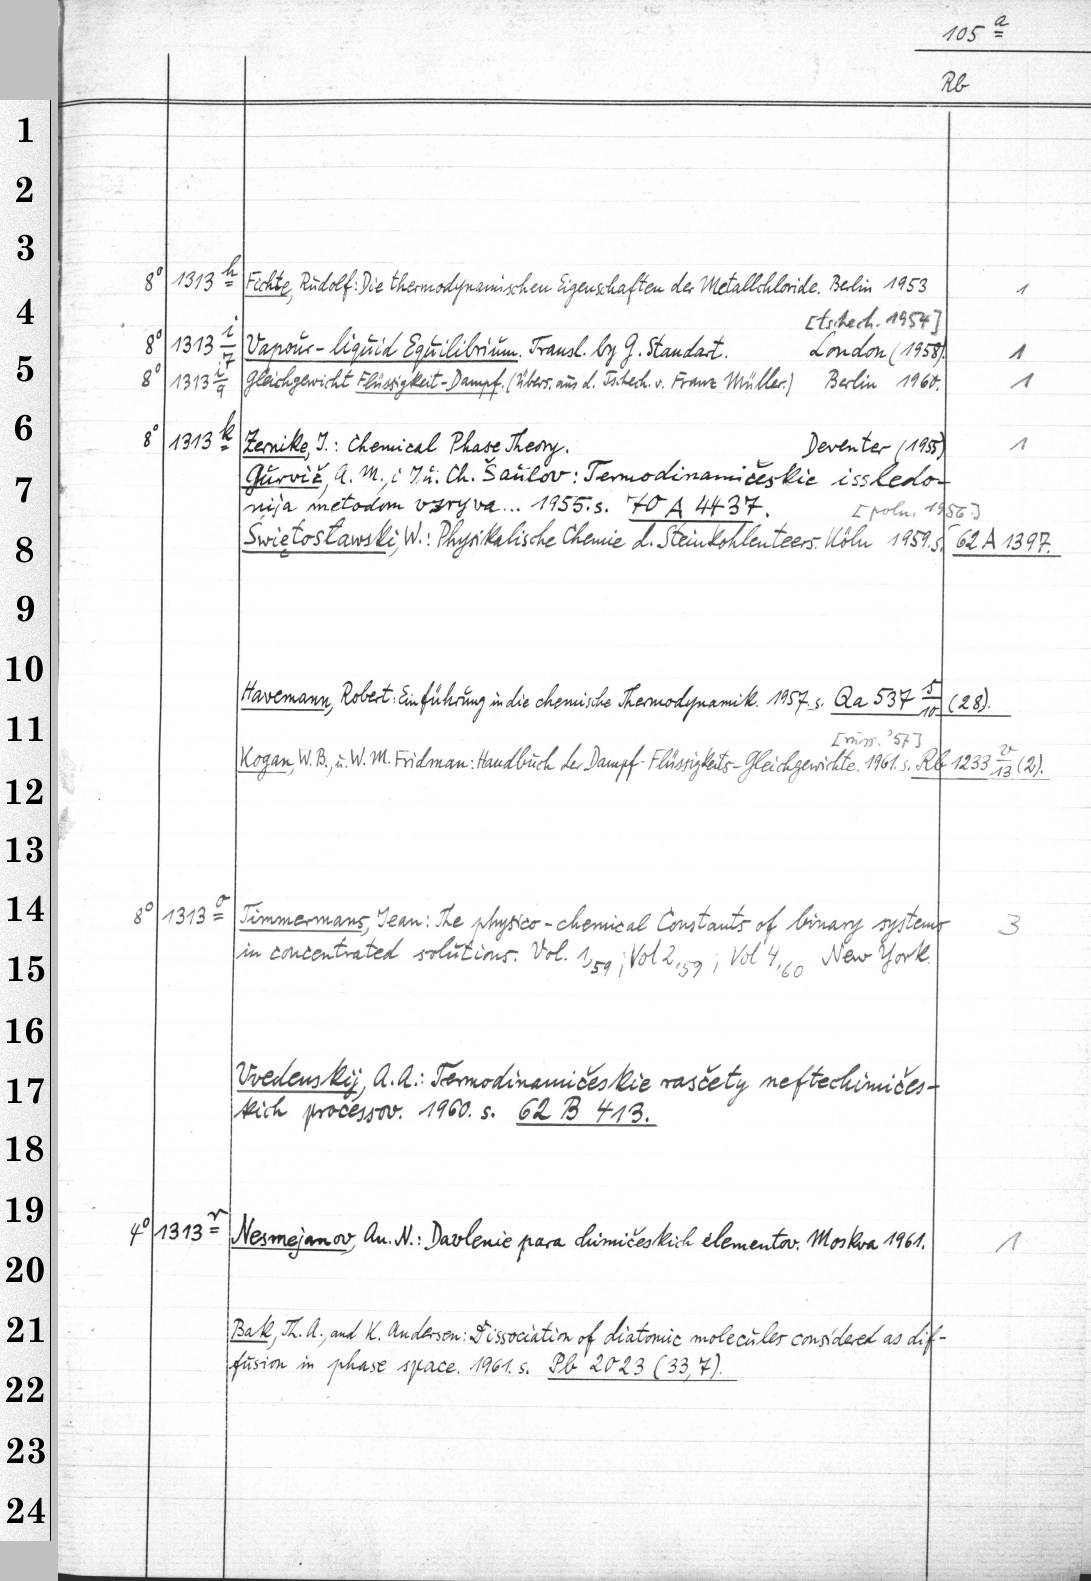 105 a
Rb
1
2
3
8° 1313 h Fichte, Rudolf: Die thermodynamischen Eigenschaften der Metallchloride. Berlin 1953 1
4
[tschech. 1954]
8° 1313 i Vapour-liquid Equilibrium. Transl. by G. Standart. London (1958). 1
5
8° 1313 i7/9 Gleichgewicht Flüssigkeit-Dampf. (Übers. aus d. Tschech. v. Franz Müller.) Berlin 1960. 1
6
8° 1313 k Zernike, J.: Chemical Phase Theory. Deventer (1955) 1
7
Gurvič, A. M., i Ju. Ch. Šaulov: Termodinamičeskie issledo-
nija metodom vzryva... 1955. s. 70 A 4437.
[poln. 1956]
8
Świętosławski, W.: Physikalische Chemie d. Steinkohlenteers. Köln 1959. s. 62 A 1397.
9
10
Havemann, Robert: Einführung in die chemische Thermodynamik. 1957. s. Qa 537 5/10 (28).
11
[russ. '57]
Kogan, W. B., u. W. M. Fridman: Handbuch der Dampf-Flüssigkeits-Gleichgewichte. 1961. s. Rb 1233 v/13 (2).
12
13
14
8° 1313 o Timmermans, Jean: The physico-chemical Constants of binary systems 3
in concentrated solutions. Vol. 1,59; Vol 2,59; Vol 4,60 New York.
15
16
17
Vvedenskij, A. A.: Termodinamičeskie rasčety neftechimičes-
kich processov. 1960. s. 62 B 413.
18
19
4° 1313 r Nesmejanov, An. N.: Davlenie para chimičeskich elementov. Moskva 1961. 1
20
21
Bak, Th. A., and K. Andersen: Dissociation of diatomic molecules considered as dif-
fusion in phase space. 1961. s. Pb 2023 (33,7).
22
23
24